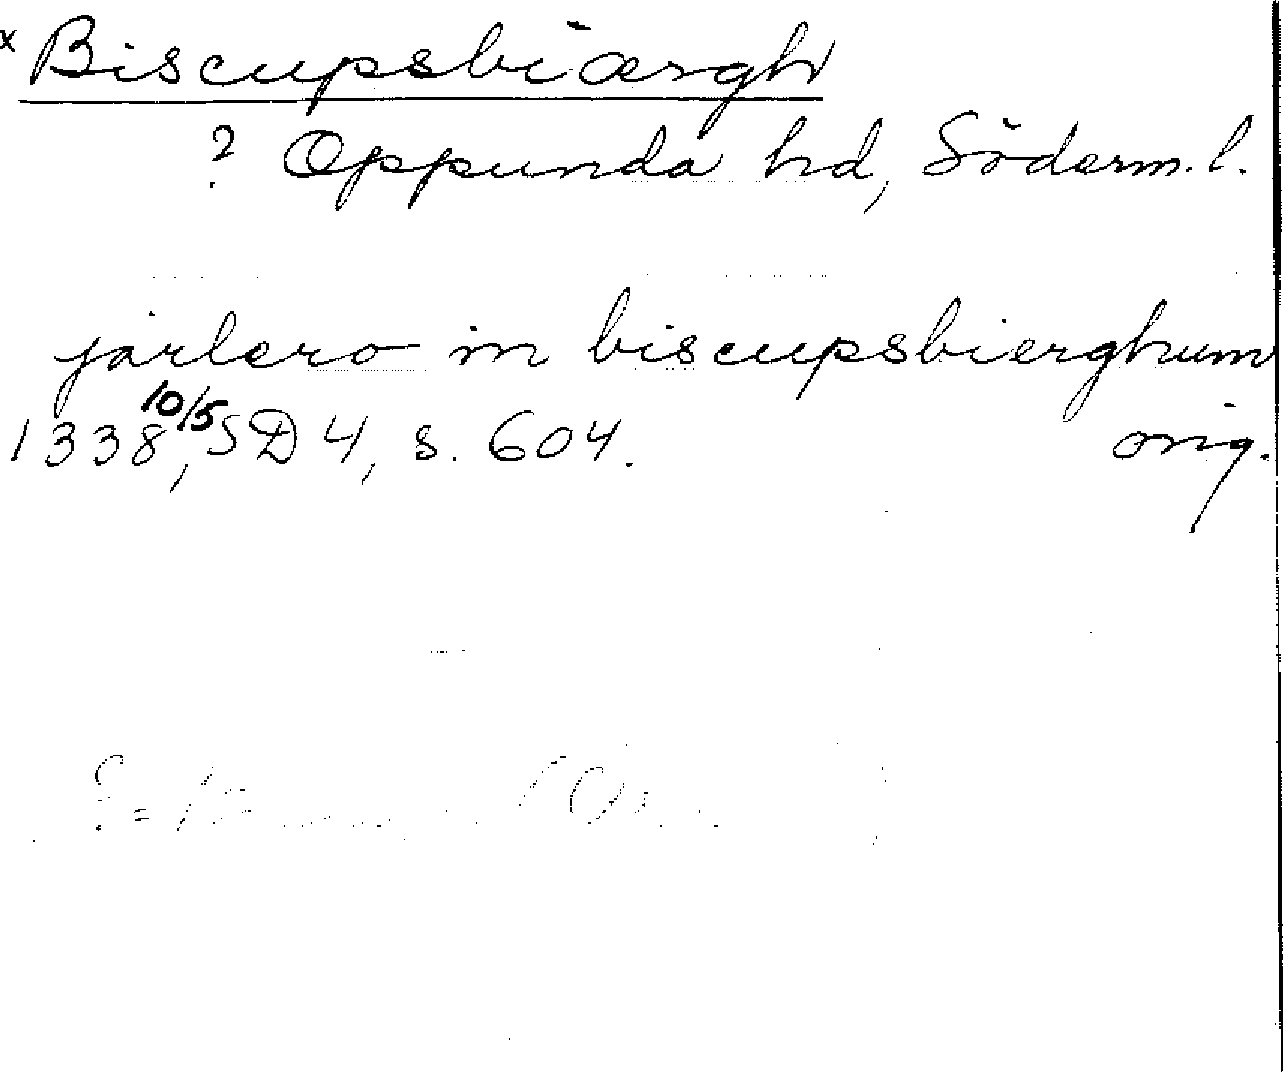 x Biscupsbiærgh
? Oppunda hd, Söderm. l.
jarlero in biscupsbierghum
1338 10/5, SD 4, s. 604. orig.